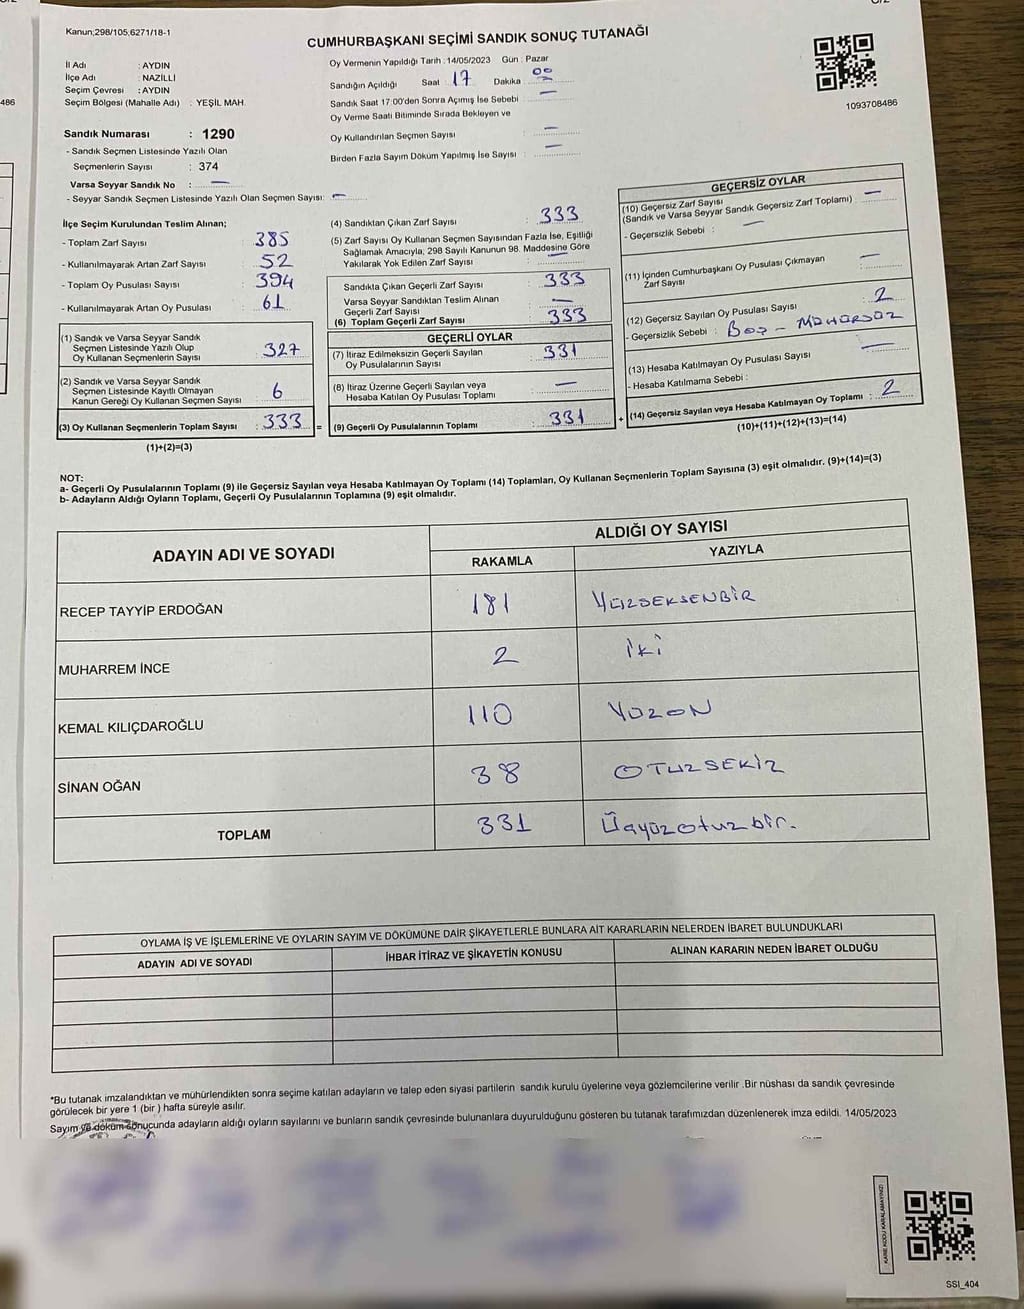 Kanun;298/105,6271/18-1
CUMHURBAŞKANI SEÇİMİ SANDIK SONUÇ TUTANAĞI
1093708486
486
İl Adı : AYDIN
İlçe Adı : NAZİLLİ
Seçim Çevresi : AYDIN
Seçim Bölgesi (Mahalle Adı) : YEŞİL MAH.
Sandık Numarası : 1290
- Sandık Seçmen Listesinde Yazılı Olan
Seçmenlerin Sayısı : 374
Varsa Seyyar Sandık No : —
- Seyyar Sandık Seçmen Listesinde Yazılı Olan Seçmen Sayısı: —
Oy Vermenin Yapıldığı Tarih :14/05/2023 Gün : Pazar
Sandığın Açıldığı Saat : 17 Dakika : 00
Sandık Saat 17:00'den Sonra Açımış İse Sebebi : —
Oy Verme Saati Bitiminde Sırada Bekleyen ve
Oy Kullandırılan Seçmen Sayısı : —
Birden Fazla Sayım Döküm Yapılmış İse Sayısı : —
İlçe Seçim Kurulundan Teslim Alınan;
- Toplam Zarf Sayısı : 385
- Kullanılmayarak Artan Zarf Sayısı : 52
- Toplam Oy Pusulası Sayısı : 394
- Kullanılmayarak Artan Oy Pusulası : 61
(1) Sandık ve Varsa Seyyar Sandık
Seçmen Listesinde Yazılı Olup
Oy Kullanan Seçmenlerin Sayısı : 327
(2) Sandık ve Varsa Seyyar Sandık
Seçmen Listesinde Kayıtlı Olmayan
Kanun Gereği Oy Kullanan Seçmen Sayısı : 6
(3) Oy Kullanan Seçmenlerin Toplam Sayısı : 333 =
(1)+(2)=(3)
(4) Sandıktan Çıkan Zarf Sayısı : 333
(5) Zarf Sayısı Oy Kullanan Seçmen Sayısından Fazla İse, Eşitliği
Sağlamak Amacıyla, 298 Sayılı Kanunun 98. Maddesine Göre
Yakılarak Yok Edilen Zarf Sayısı : —
Sandıkta Çıkan Geçerli Zarf Sayısı : 333
Varsa Seyyar Sandıktan Teslim Alınan
Geçerli Zarf Sayısı : —
(6) Toplam Geçerli Zarf Sayısı : 333
GEÇERLİ OYLAR
(7) İtiraz Edilmeksizin Geçerli Sayılan
Oy Pusulalarının Sayısı : 331
(8) İtiraz Üzerine Geçerli Sayılan veya
Hesaba Katılan Oy Pusulası Toplamı : —
(9) Geçerli Oy Pusulalarının Toplamı : 331 +
GEÇERSİZ OYLAR
(10) Geçersiz Zarf Sayısı
(Sandık ve Varsa Seyyar Sandık Geçersiz Zarf Toplamı) : —
- Geçersizlik Sebebi : —
(11) İçinden Cumhurbaşkanı Oy Pusulası Çıkmayan
Zarf Sayısı : —
(12) Geçersiz Sayılan Oy Pusulası Sayısı : 2
- Geçersizlik Sebebi : BOŞ – MÜHÜRSÜZ
(13) Hesaba Katılmayan Oy Pusulası Sayısı : —
- Hesaba Katılmama Sebebi :
(14) Geçersiz Sayılan veya Hesaba Katılmayan Oy Toplamı : 2
(10)+(11)+(12)+(13)=(14)
NOT:
a- Geçerli Oy Pusulalarının Toplamı (9) ile Geçersiz Sayılan veya Hesaba Katılmayan Oy Toplamı (14) Toplamları, Oy Kullanan Seçmenlerin Toplam Sayısına (3) eşit olmalıdır. (9)+(14)=(3)
b- Adayların Aldığı Oyların Toplamı, Geçerli Oy Pusulalarının Toplamına (9) eşit olmalıdır.
ADAYIN ADI VE SOYADI ALDIĞI OY SAYISI
RAKAMLA YAZIYLA
RECEP TAYYİP ERDOĞAN 181 YÜZSEKSENBİR
MUHARREM İNCE 2 İki
KEMAL KILIÇDAROĞLU 110 YÜZON
SİNAN OĞAN 38 OTUZSEKİZ
TOPLAM 331 Üçyüzotuzbir.
OYLAMA İŞ VE İŞLEMLERİNE VE OYLARIN SAYIM VE DÖKÜMÜNE DAİR ŞİKAYETLERLE BUNLARA AİT KARARLARIN NELERDEN İBARET BULUNDUKLARI
ADAYIN ADI VE SOYADI İHBAR İTİRAZ VE ŞİKAYETİN KONUSU ALINAN KARARIN NEDEN İBARET OLDUĞU
*Bu tutanak imzalandıktan ve mühürlendikten sonra seçime katılan adayların ve talep eden siyasi partilerin sandık kurulu üyelerine veya gözlemcilerine verilir .Bir nüshası da sandık çevresinde
görülecek bir yere 1 (bir ) hafta süreyle asılır.
Sayım ve döküm sonucunda adayların aldığı oyların sayılarını ve bunların sandık çevresinde bulunanlara duyurulduğunu gösteren bu tutanak tarafımızdan düzenlenerek imza edildi. 14/05/2023
KARE KODU KARALAMAYINIZ!
SSI_404